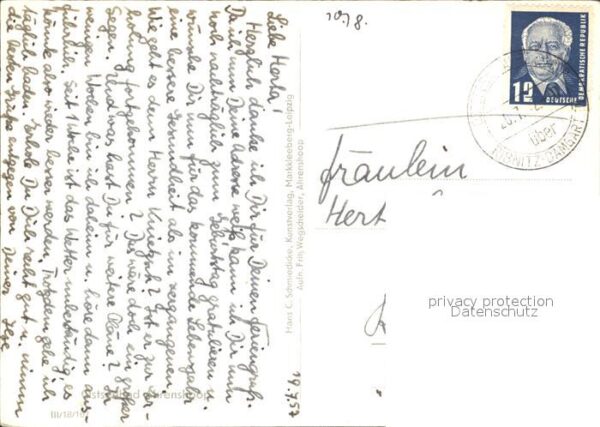 Liebe Herta!
Herzlich danke ich Dir für Deinen Feriengruß.
Da ich nun Deine Adresse weiß, kann ich Dir nun
noch nachträglich zum Geburtstag gratulieren. Ich
wünsche Dir nun für das kommende Lebensjahr
eine bessere Gesundheit als im vergangenen.
Wie geht es dem Herrn Ist er zur Er-
holung fortgekommen? Das wäre doch ein großer
Segen. Und was hast Du für weitere Pläne? In
wenigen Wochen bin ich daheim u. höre dann aus-
führlich. Seit 1 Woche ist das Wetter unbeständig, es
könnte also wieder besser werden. Trotzdem gehe ich
täglich baden. Erhole Du Dich recht gut u. nimm
die besten Grüße entgegen von Deiner
19.7.57
10/8.
Fräulein
Hert
Hans C. Schmiedicke, Kunstverlag, Markkleeberg-Leipzig
Aufn. Fritz Wegscheider, Ahrenshoop
Ostseebad Ahrenshoop
III/18/16
DEUTSCHE
DEMOKRATISCHE REPUBLIK
12
über
RIBNITZ-DAMGARTEN
privacy protection
Datenschutz